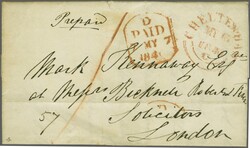 Prepaid
D
PAID
MY 7
184
CHELTENHAM
MY 6
Mark Kennaway Esqre
at Messrs Bicknell Roberts
Solicitors
57
London